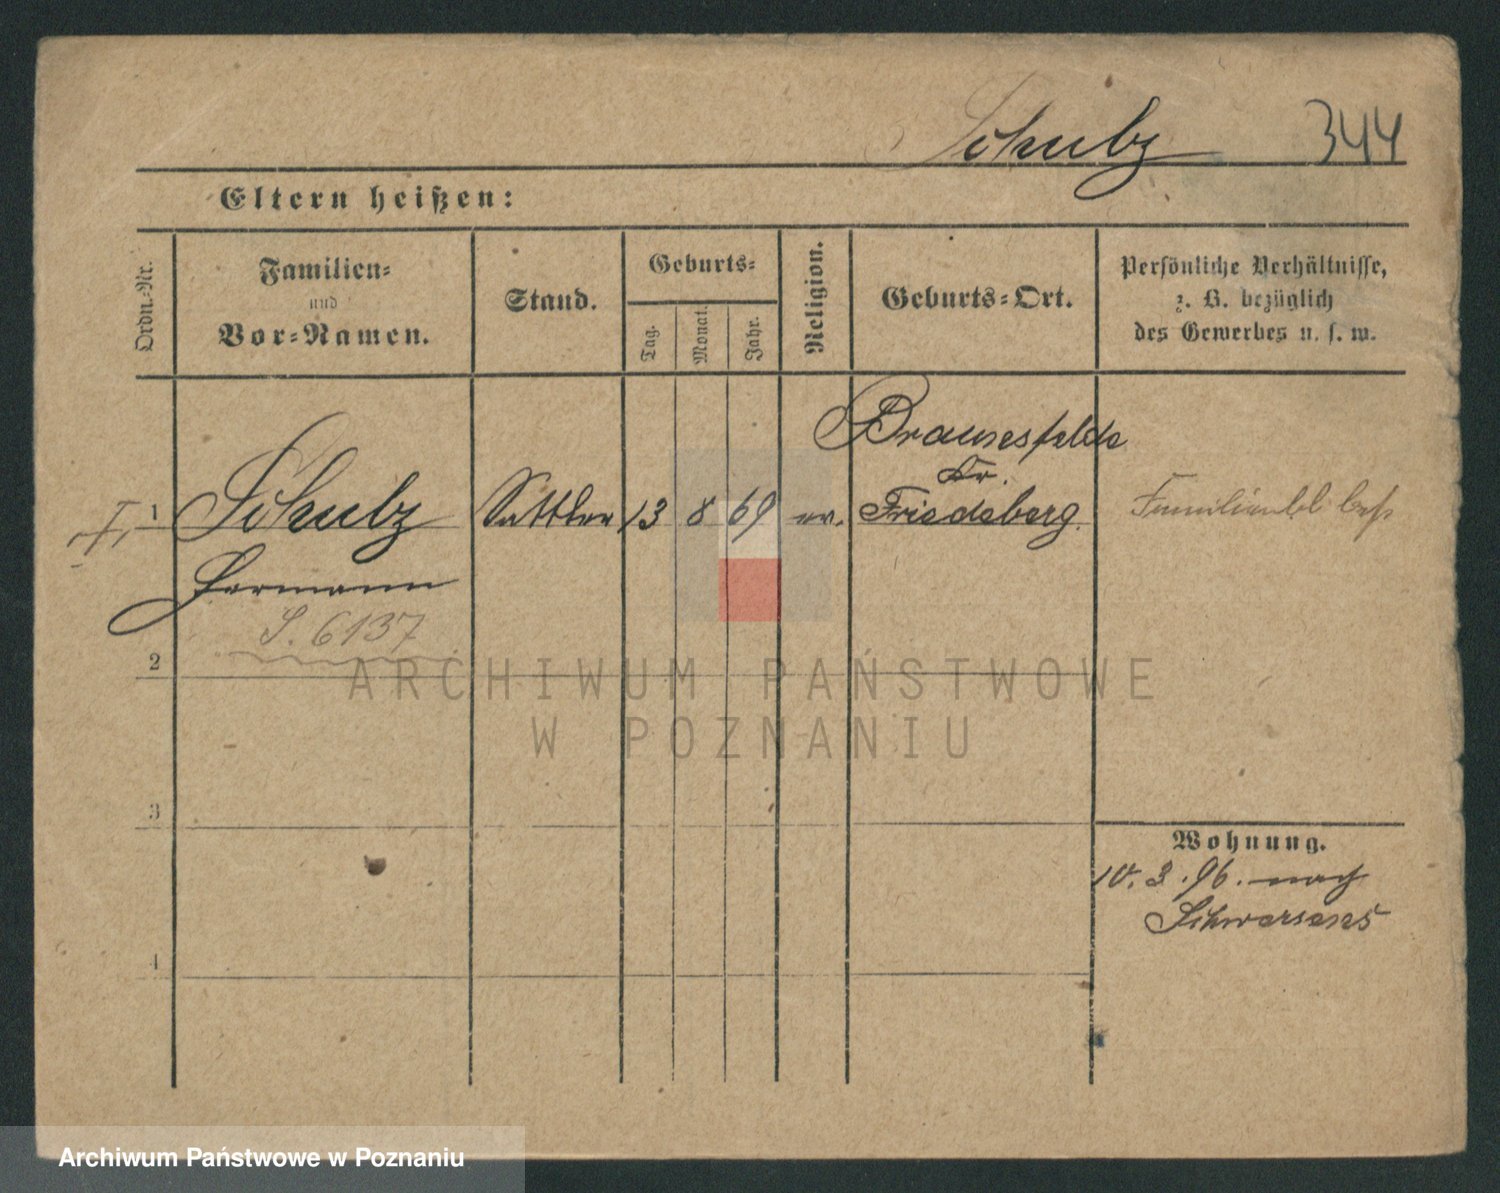 Schulz 344
Eltern heißen:
Ordn.-Nr.
Familien-
und
Vor-Namen.
Stand.
Geburts-
Tag.
Monat.
Jahr.
Religion.
Geburts-Ort.
Persönliche Verhältnisse,
z. B. bezüglich
des Gewerbes u. s. w.
1
Schulz
Hermann
S. 6137
Sattler
13
8
69
ev.
Braunesfelde
Kr.
Friedeberg.
2
ARCHIWUM PAŃSTWOWE
W POZNANIU
3
4
Wohnung.
10.3.96. nach
Schwersenz
Archiwum Państwowe w Poznaniu